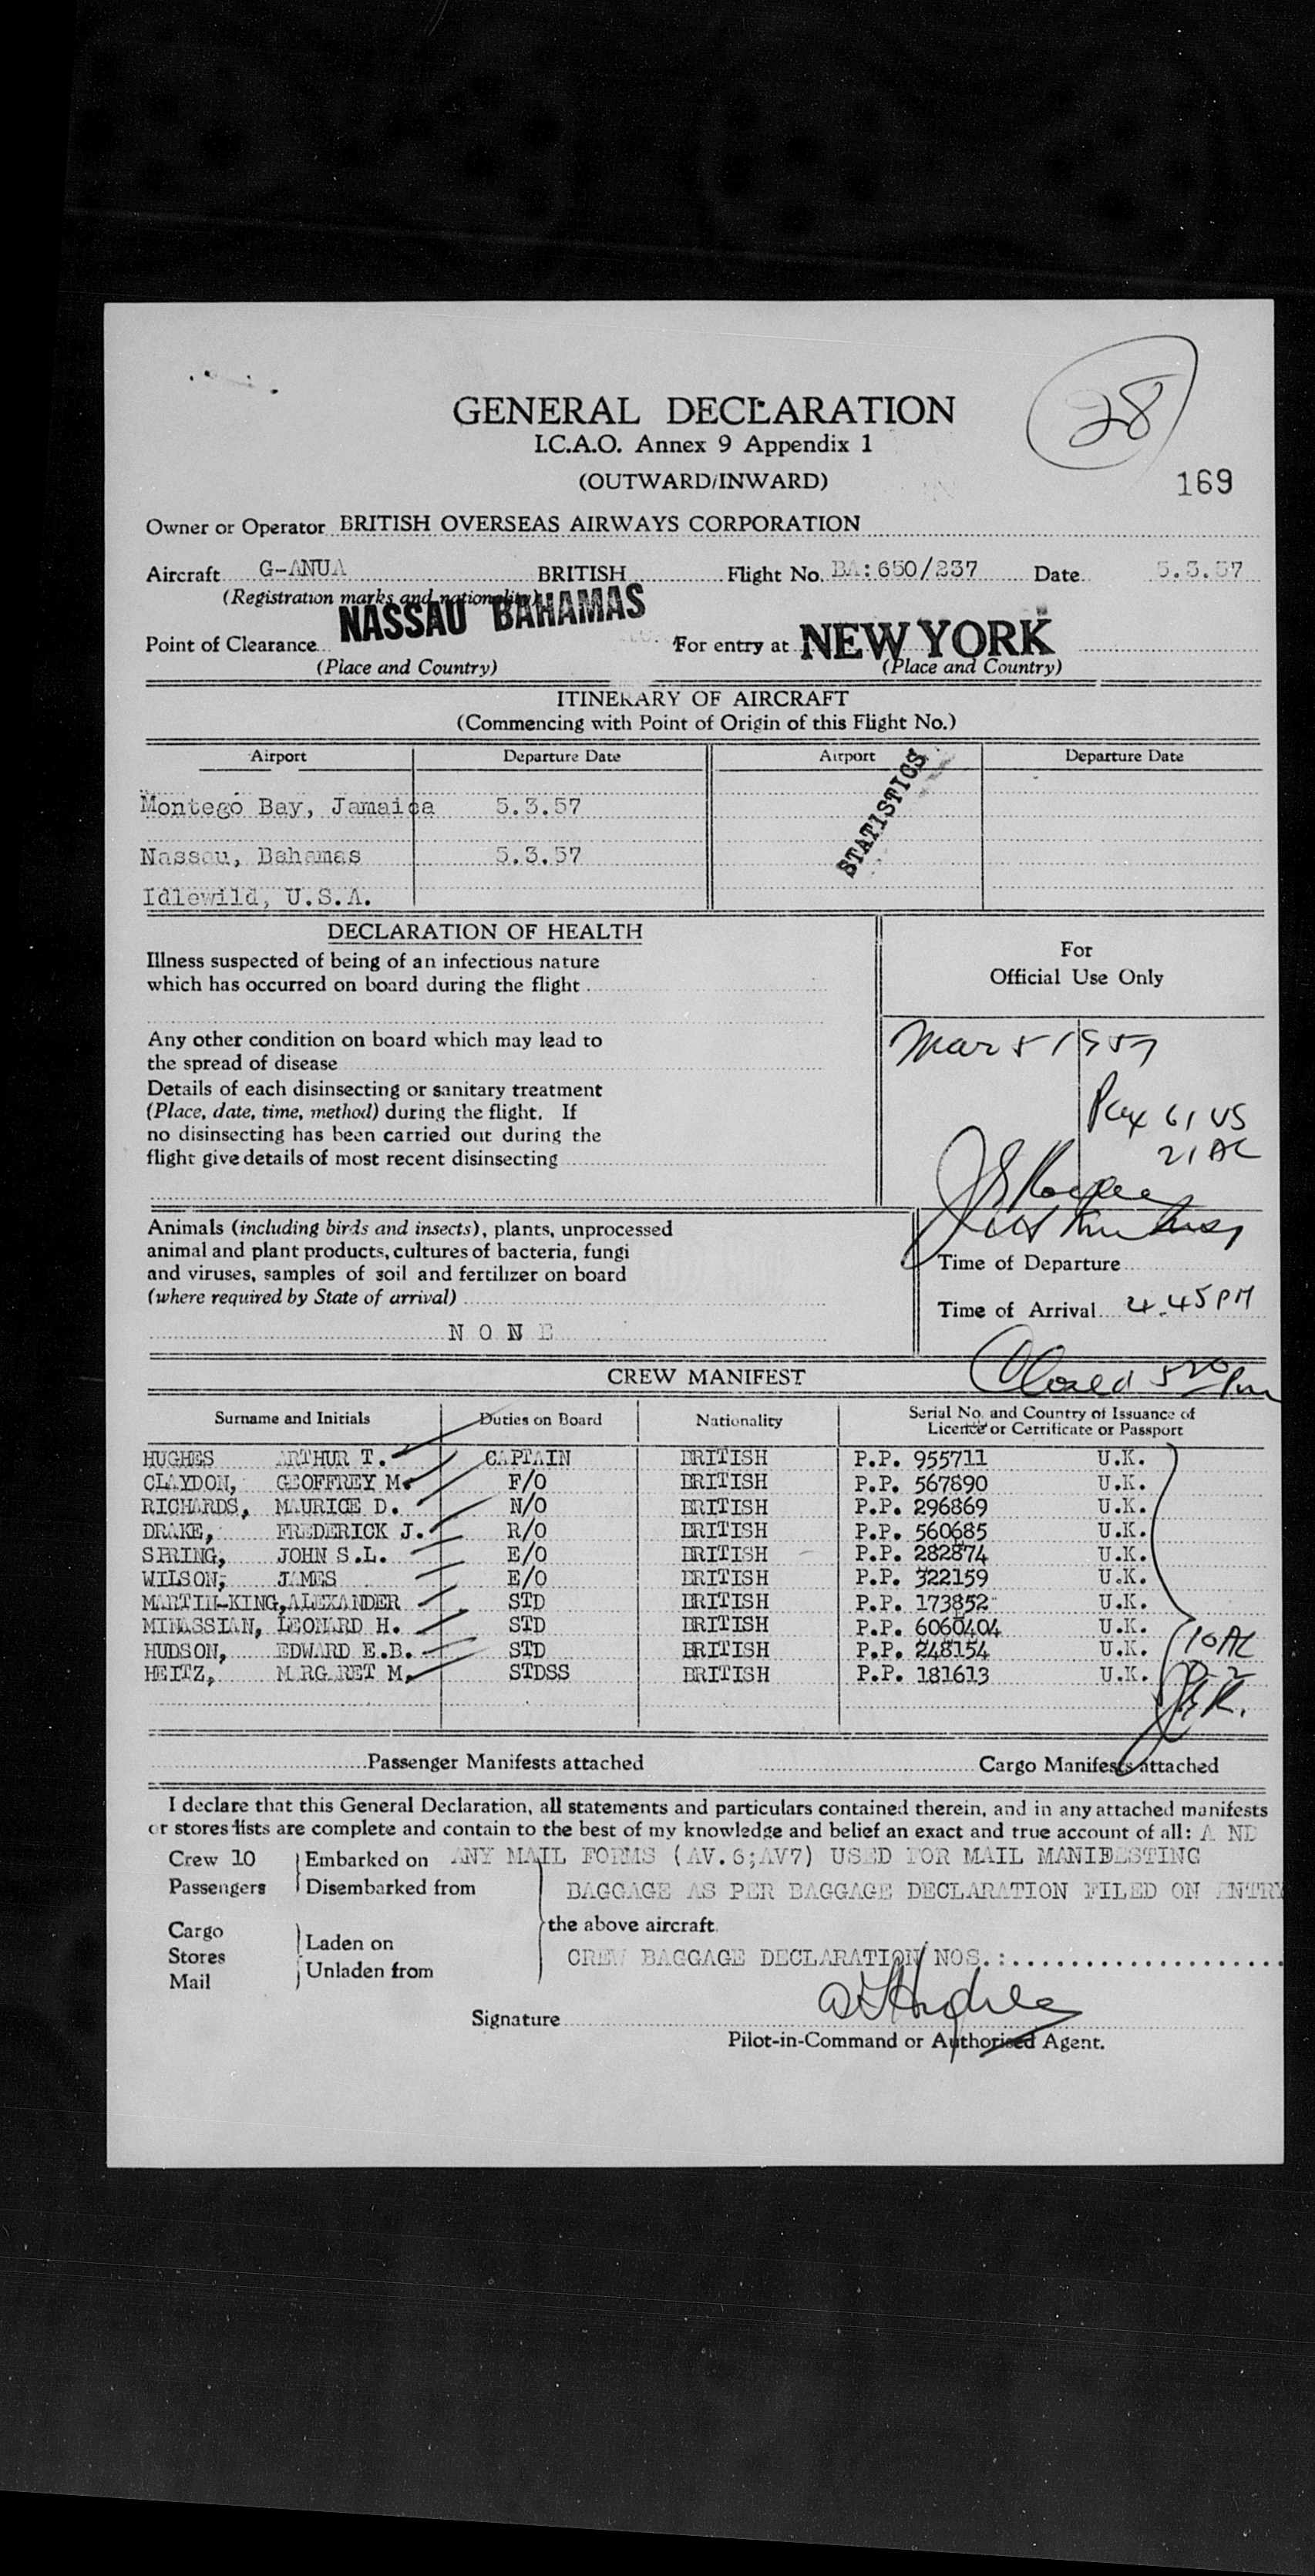 28
GENERAL DECLARATION
I.C.A.O. Annex 9 Appendix 1
(OUTWARD/INWARD)
169
Owner or Operator BRITISH OVERSEAS AIRWAYS CORPORATION
Aircraft G-ANUA BRITISH Flight No. BA:650/237 Date 5.3.57
(Registration marks and nationality)
NASSAU BAHAMAS
Point of Clearance For entry at NEW YORK
(Place and Country) (Place and Country)
ITINERARY OF AIRCRAFT
(Commencing with Point of Origin of this Flight No.)
Airport Departure Date Airport Departure Date
STATISTICS
Montego Bay, Jamaica 5.3.57
Nassau, Bahamas 5.3.57
Idlewild, U.S.A.
DECLARATION OF HEALTH
Illness suspected of being of an infectious nature
which has occurred on board during the flight
Any other condition on board which may lead to
the spread of disease
Details of each disinsecting or sanitary treatment
(Place, date, time, method) during the flight. If
no disinsecting has been carried out during the
flight give details of most recent disinsecting
For
Official Use Only
Mar 5 1957
Pax 61 US
21 AL
Animals (including birds and insects), plants, unprocessed
animal and plant products, cultures of bacteria, fungi
and viruses, samples of soil and fertilizer on board
(where required by State of arrival)
N O N E
Time of Departure
Time of Arrival 4.45 PM
Closed 520 pm
CREW MANIFEST
Surname and Initials Duties on Board Nationality Serial No. and Country of Issuance of
Licence or Certificate or Passport
HUGHES ARTHUR T. CAPTAIN BRITISH P.P. 955711 U.K.
CLAYDON, GEOFFREY M. F/O BRITISH P.P. 567890 U.K.
RICHARDS, MAURICE D. N/O BRITISH P.P. 296869 U.K.
DRAKE, FREDERICK J. R/O BRITISH P.P. 560685 U.K.
SPRING, JOHN S.L. E/O BRITISH P.P. 282874 U.K.
WILSON, JAMES E/O BRITISH P.P. 322159 U.K.
MARTIN-KING, ALEXANDER STD BRITISH P.P. 173852 U.K.
MINASSIAN, LEONARD H. STD BRITISH P.P. 6060404 U.K.
HUDSON, EDWARD E.B. STD BRITISH P.P. 248154 U.K.
HEITZ, MARGARET M. STDSS BRITISH P.P. 181613 U.K.
10 AL
D-2
Passenger Manifests attached Cargo Manifests attached
I declare that this General Declaration, all statements and particulars contained therein, and in any attached manifests
or stores lists are complete and contain to the best of my knowledge and belief an exact and true account of all: A ND
Crew 10 Embarked on ANY MAIL FORMS (AV.6;AV7) USED FOR MAIL MANIFESTING
Passengers Disembarked from BAGGAGE AS PER BAGGAGE DECLARATION FILED ON ENTRY
Cargo the above aircraft.
Stores Laden on
Mail Unladen from CREW BAGGAGE DECLARATION NOS.:
Signature
Pilot-in-Command or Authorised Agent.